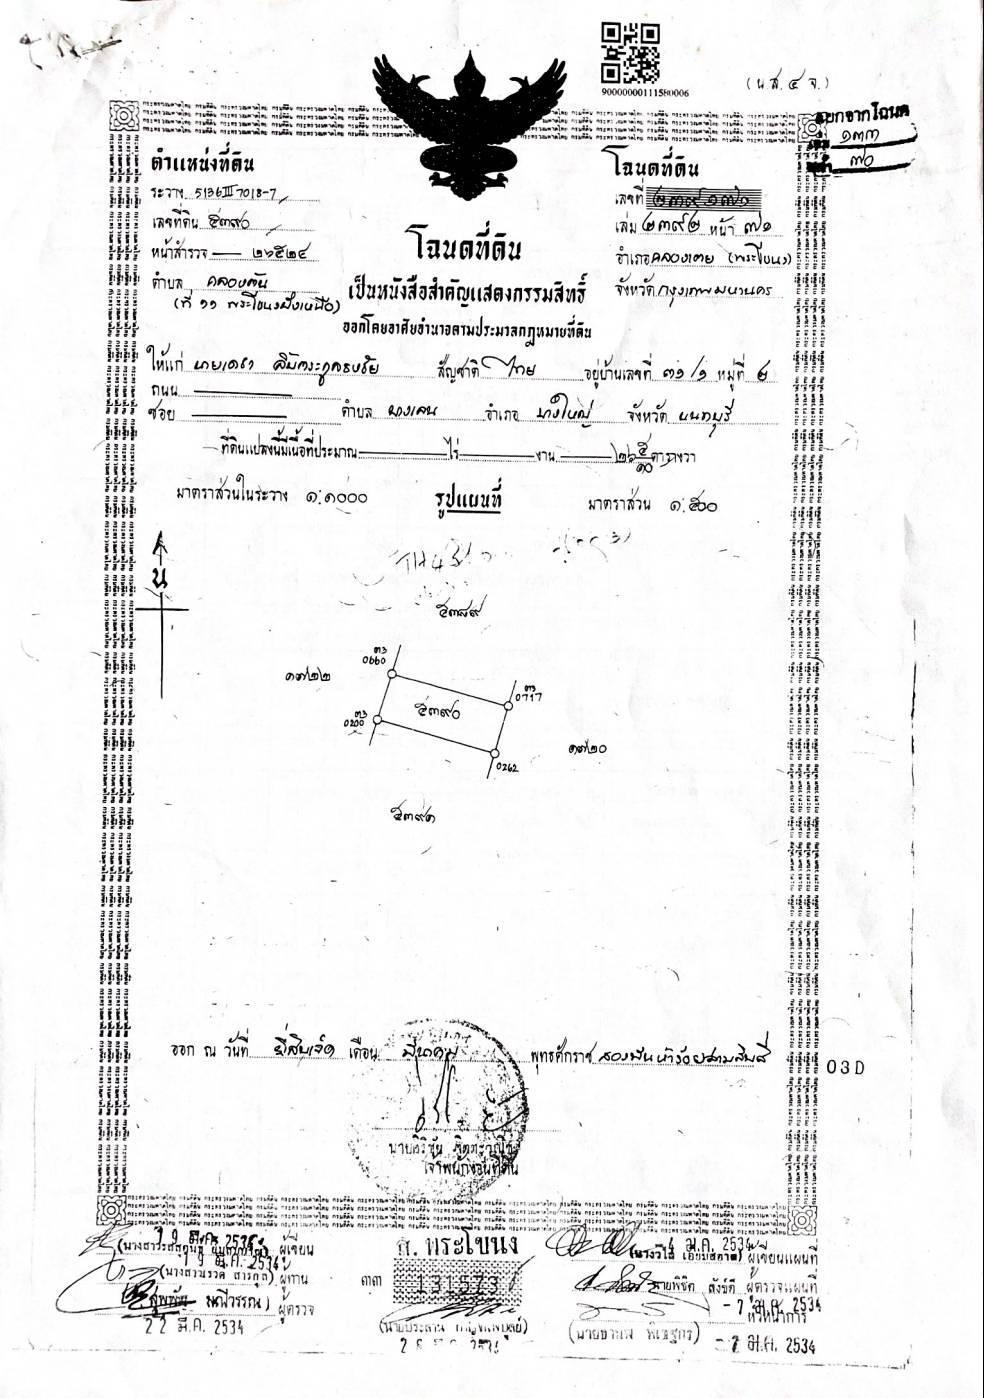 900000001115B0006
(น.ส. ๔ จ.)
แยกจากโฉนด
๑๓๓
๗๐
ตำแหน่งที่ดิน
ระวาง 5136III7018-7
เลขที่ดิน ๕๓๙๐
หน้าสำรวจ ๒๖๕๒๔
ตำบล คลองตัน
(ที่ ๑๑ พระโขนงฝั่งเหนือ)
โฉนดที่ดิน
เลขที่
เล่ม ๒๓๙๒ หน้า ๗๑
อำเภอ คลองเตย (พระโขนง)
จังหวัด กรุงเทพมหานคร
โฉนดที่ดิน
เป็นหนังสือสำคัญแสดงกรรมสิทธิ์
ออกโดยอาศัยอำนาจตามประมวลกฎหมายที่ดิน
ให้แก่ สัญชาติ ไทย อยู่บ้านเลขที่ ๓๑/๑ หมู่ที่ ๒
ถนน
ซอย ตำบล บางเลน อำเภอ บางใหญ่ จังหวัด นนทบุรี
ที่ดินแปลงนี้มีเนื้อที่ประมาณ ไร่ งาน ๒๖ ๕/๑๐ ตารางวา
มาตราส่วนในระวาง ๑:๑๐๐๐ รูปแผนที่ มาตราส่วน ๑:๕๐๐
น
๕๓๘๙
ต3
0660
๑๗๒๒
ต3
0717
๕๓๙๐
ต3
0200
๑๗๒๐
0262
๕๓๙๑
ออก ณ วันที่ ยี่สิบเจ็ด เดือน มีนาคม พุทธศักราช สองพันห้าร้อยสามสิบสี่
03D
เจ้าพนักงานที่ดิน
19 มี.ค. 2534
ผู้เขียน
19 มี.ค. 2534
ผู้ทาน
ผู้ตรวจ
22 มี.ค. 2534
ส. พระโขนง
๓๓ 131573
ผู้เขียนแผนที่
ผู้ตรวจแผนที่
-7 มี.ค. 2534
หัวหน้าการ
-7 มี.ค. 2534